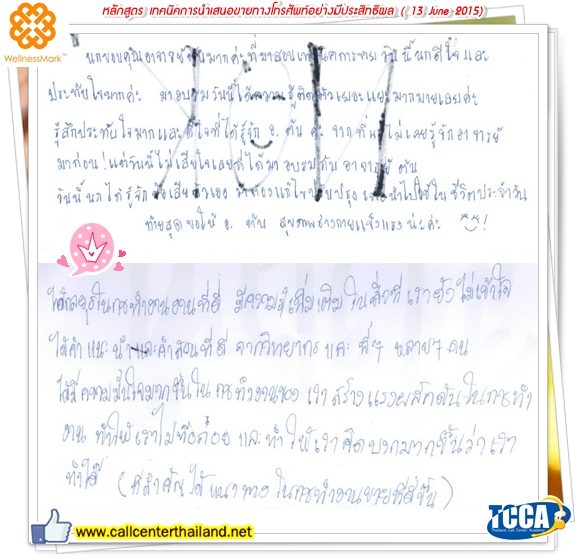 หลักสูตร เทคนิคการนำเสนอขายทางโทรศัพท์อย่างมีประสิทธิผล ( 13 June 2015)
WellnessMark™
นกขอบคุณอาจารย์ มากค่ะ ที่มาสอนเทคนิคการขาย วันนี้นกดีใจ และ
ประทับใจมากค่ะ มาอบรมวันนี้ได้ความรู้ติดตัวเยอะแยะมากมายเลยค่ะ
รู้สึกประทับใจมากและดีใจที่ได้รู้จัก อ. ต้น ค่ะ จากที่นกไม่เคยรู้จักอาจารย์
มาก่อน! แต่วันนี้ไม่เสียใจเลยที่ได้มาอบรมกับ อาจารย์ ต้น
วันนี้ นกได้รู้จักข้อเสียตัวเอง แก้ไขปรับปรุง นำไปใช้ใน ชีวิตประจำวัน
ท้ายสุด ขอให้ อ. ต้น สุขภาพร่างกายแข็งแรง น่ะค่ะ !
ได้ ในการทำงานที่ดี มีความรู้เพิ่มเติม ในสิ่งที่ เรายังไม่เข้าใจ
ได้คำแนะนำและคำสอนที่ดี จากวิทยากร และ พี่ๆ หลายๆ คน
ได้มีความมั่นใจมากขึ้นใน การทำงานของ เรา สร้างแรงผลักดันในการทำ
งาน ทำให้เราไม่ท้อถอย และทำให้เราคิดบวกมากขึ้นว่าเรา
ทำได้ (ที่สำคัญ ได้แนวทาง ในการทำงานขายที่ดีขึ้น)
www.callcenterthailand.net
TCCA
Thailand Call Center Academy